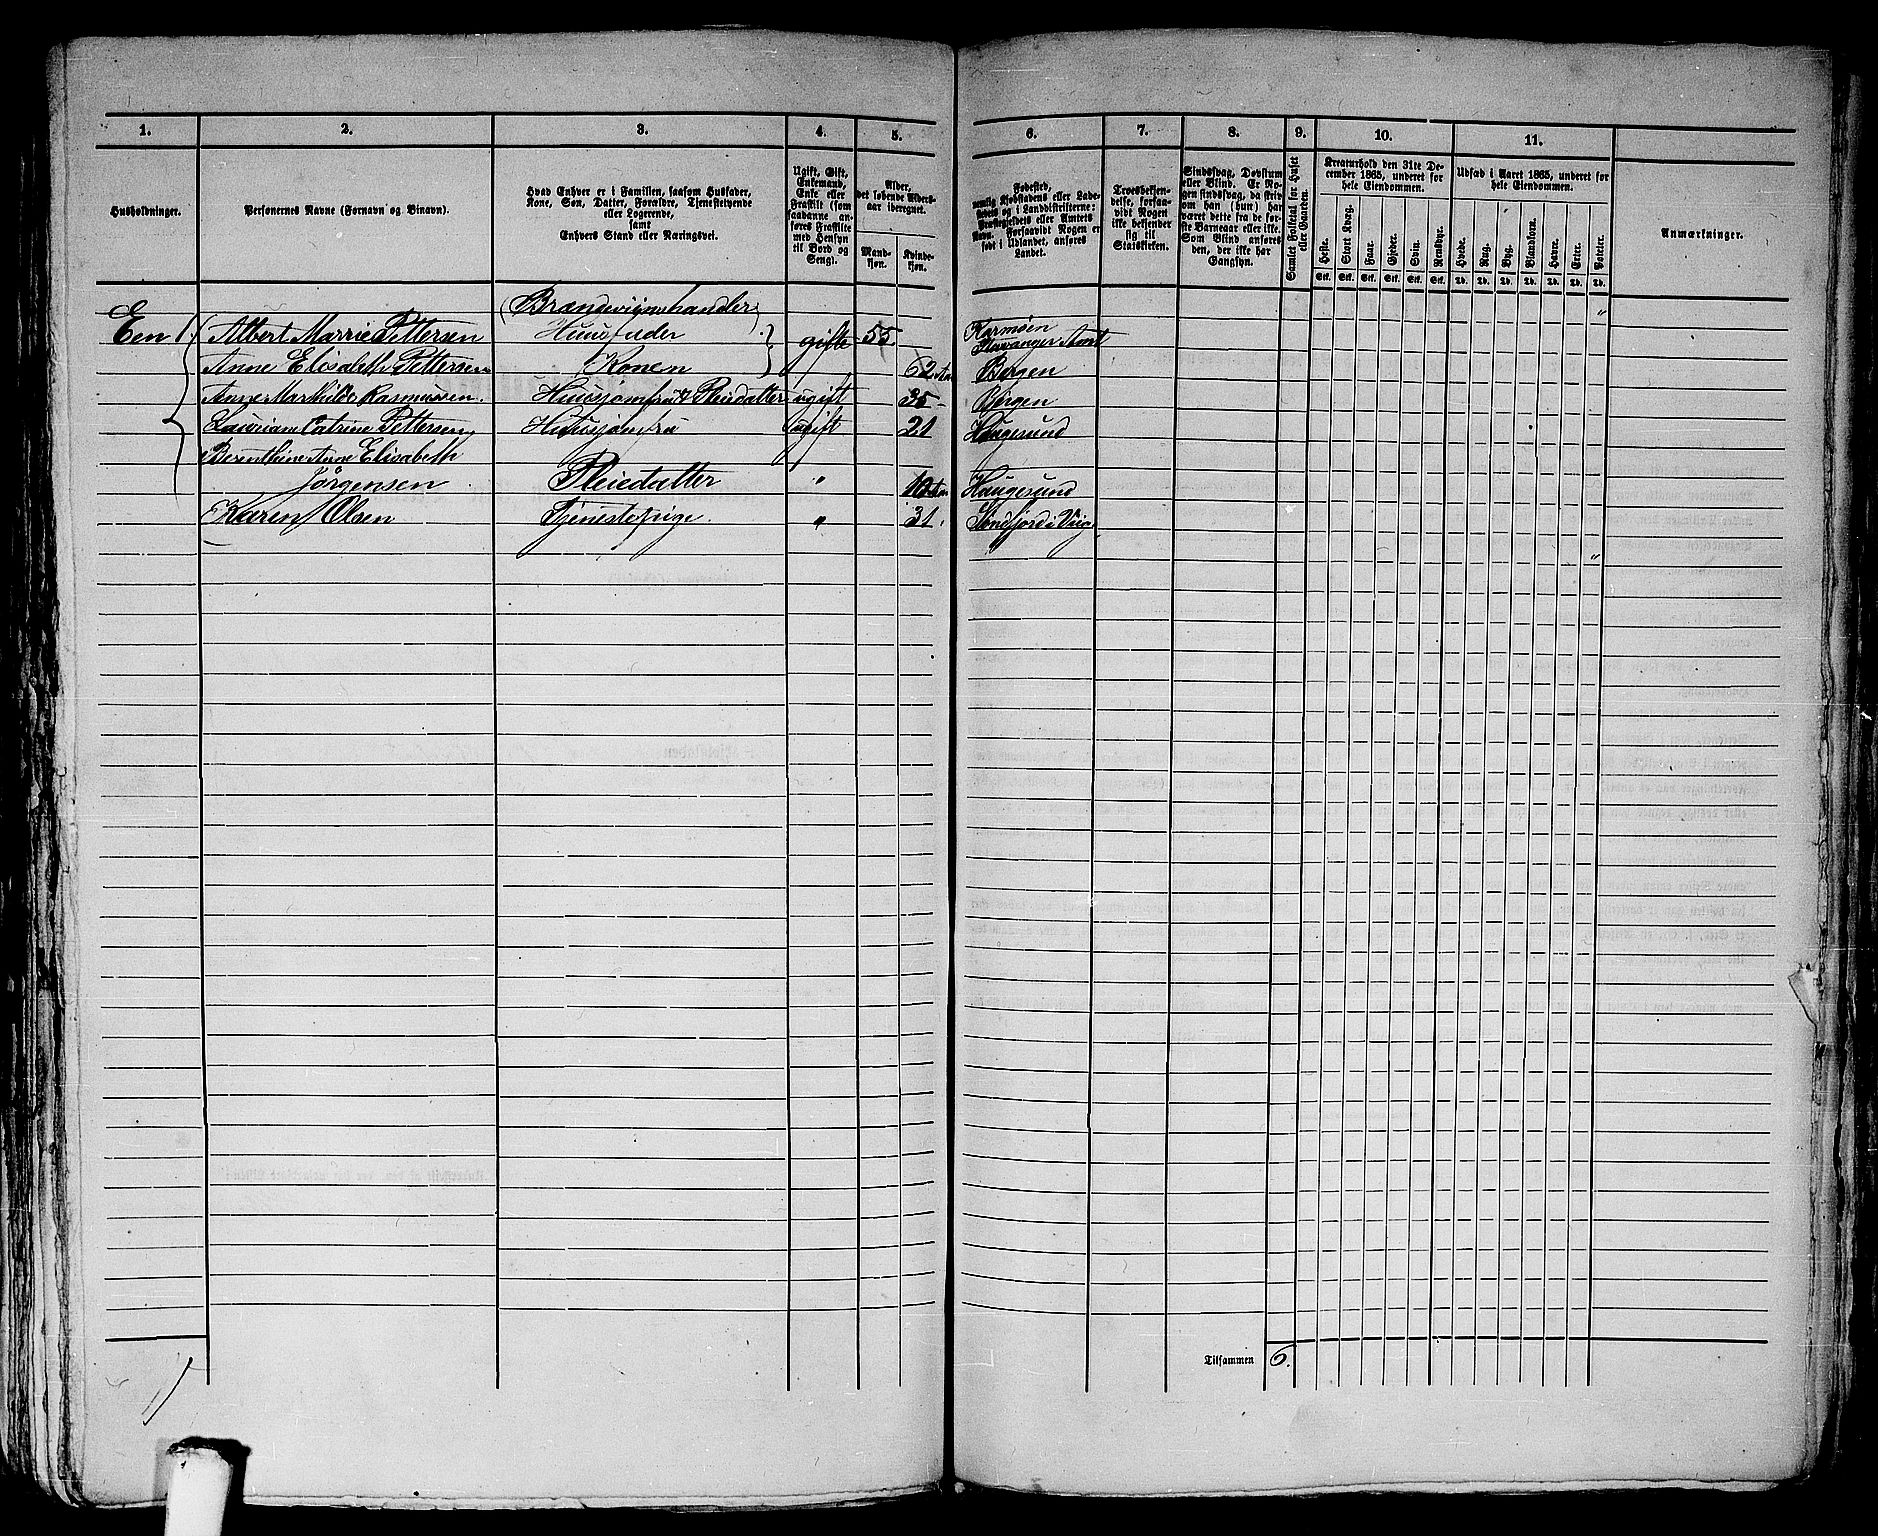 1. 2. 3. 4. 5. 6. 7. 8. 9. 10. 11.
Husholdninger.
Personernes Navne (Fornavn og Binavn).
Hvad Enhver er i Familien, saasom Husfader,
Kone, Søn, Datter, Forældre, Tjenestetyende
eller Logerende,
samt
Enhvers Stand eller Næringsvei.
Ugift, Gift,
Enkemand,
Enke eller
Fraskilt (som
saadanne an-
føres Fraskilte
med Hensyn
til Bord og
Seng).
Alder,
det løbende Alders-
aar iberegnet.
Mand-
kjøn.
Kvinde-
kjøn.
Fødested,
nemlig Kjøbstadens eller Lade-
stedets og i Landdistrikterne:
Præstegjeldets eller Amtets
Navn. Forsaavidt Nogen er
født i Udlandet, anføres
Landet.
Troesbekjen-
delse, forsaa-
vidt Nogen
ikke bekjender
sig til
Statskirken.
Sindssvag, Døvstum
eller Blind. Er No-
gen sindssvag, da skriv
om han (hun) har
været dette fra de før-
ste Barneaar eller ikke.
Som Blind anføres
den, der ikke har
Gangsyn.
Samlet Folketal for Huset
eller Gaarden.
Kreaturhold den 31te De-
cember 1865, underet for
hele Eiendommen.
Heste. Stort Kvæg. Faar. Gjeder. Svin. Rensdyr.
Stk. Stk. Stk. Stk. Stk. Stk.
Udsæd i Aaret 1865, underet for
hele Eiendommen.
Hvede. Rug. Byg. Blandkorn. Havre. Erter. Poteter.
Td. Td. Td. Td. Td. Td. Td.
Anmærkninger.
(Brændeviinshandler)
Een Albert Marrie Pettersen Huusfader gifte 55. Karmøen
Stavanger Amt
Anne Elisabeth Pettersen Konen 62 Bergen
Anne Marthilde Rasmussen. Huusjomfru & Pleiedatter ugift 35 Bergen
Lauriane Catrine Pettersen Huusjomfru ugift 21 Haugesund
Berenthine Anne Elisabeth
Jörgensen Pleiedatter " 10 Haugesund
Karen Olsen Tjenestepige. " 31.
Tilsammen 6.